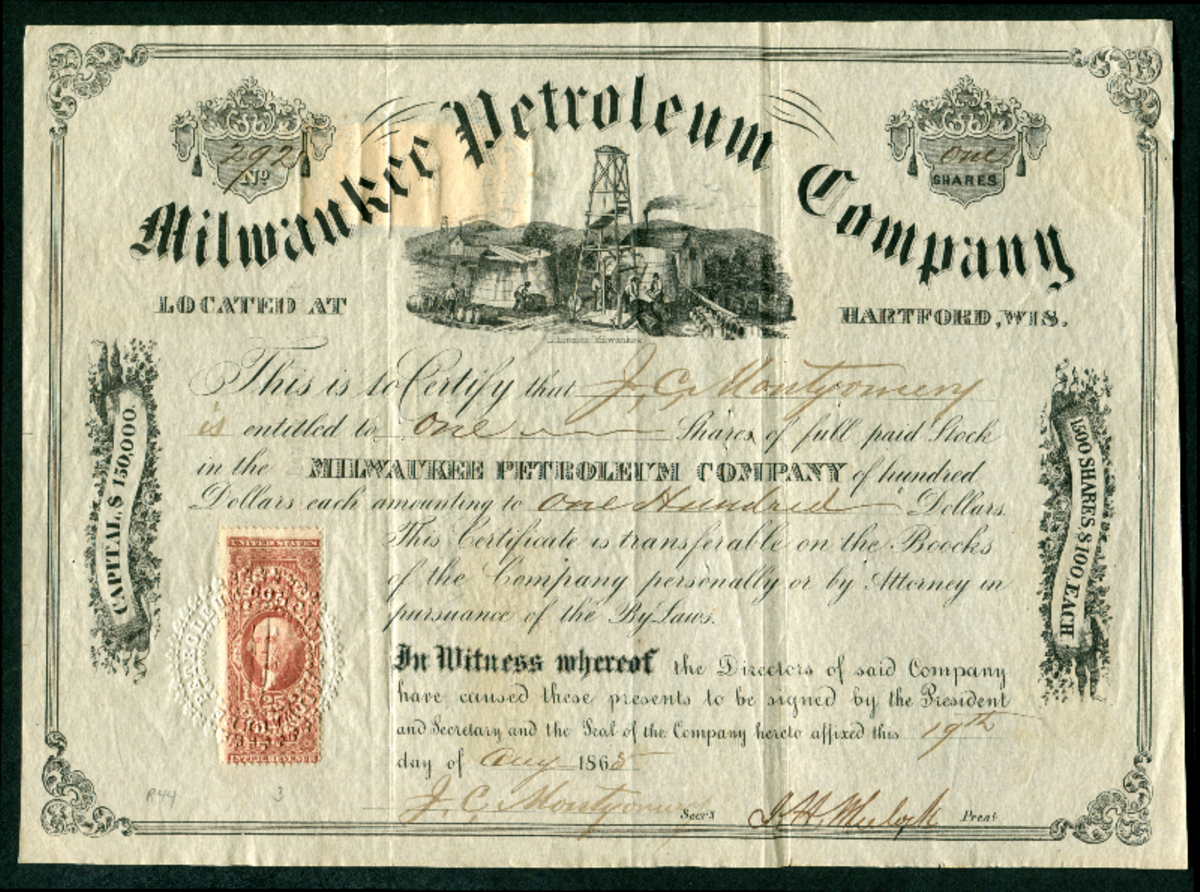 292
No
one
SHARES
Milwaukee Petroleum Company
LOCATED AT
HARTFORD, WIS.
This is to Certify that J. C. Montgomery
is entitled to one Shares of full paid Stock
in the MILWAUKEE PETROLEUM COMPANY of hundred
Dollars each amounting to one Hundred Dollars.
CAPITAL, $ 150,000.
1500 SHARES $ 100 EACH
This Certificate is transferable on the Boocks
of the Company personally or by Attorney in
pursuance of the By Laws.
UNITED STATES
25
In Witness whereof the Directors of said Company
have caused these presents to be signed by the President
and Secretary and the Seal of the Company hereto affixed this 19th
day of Aug 1865
R44
3
J. C. Montgomery Secry
Prest